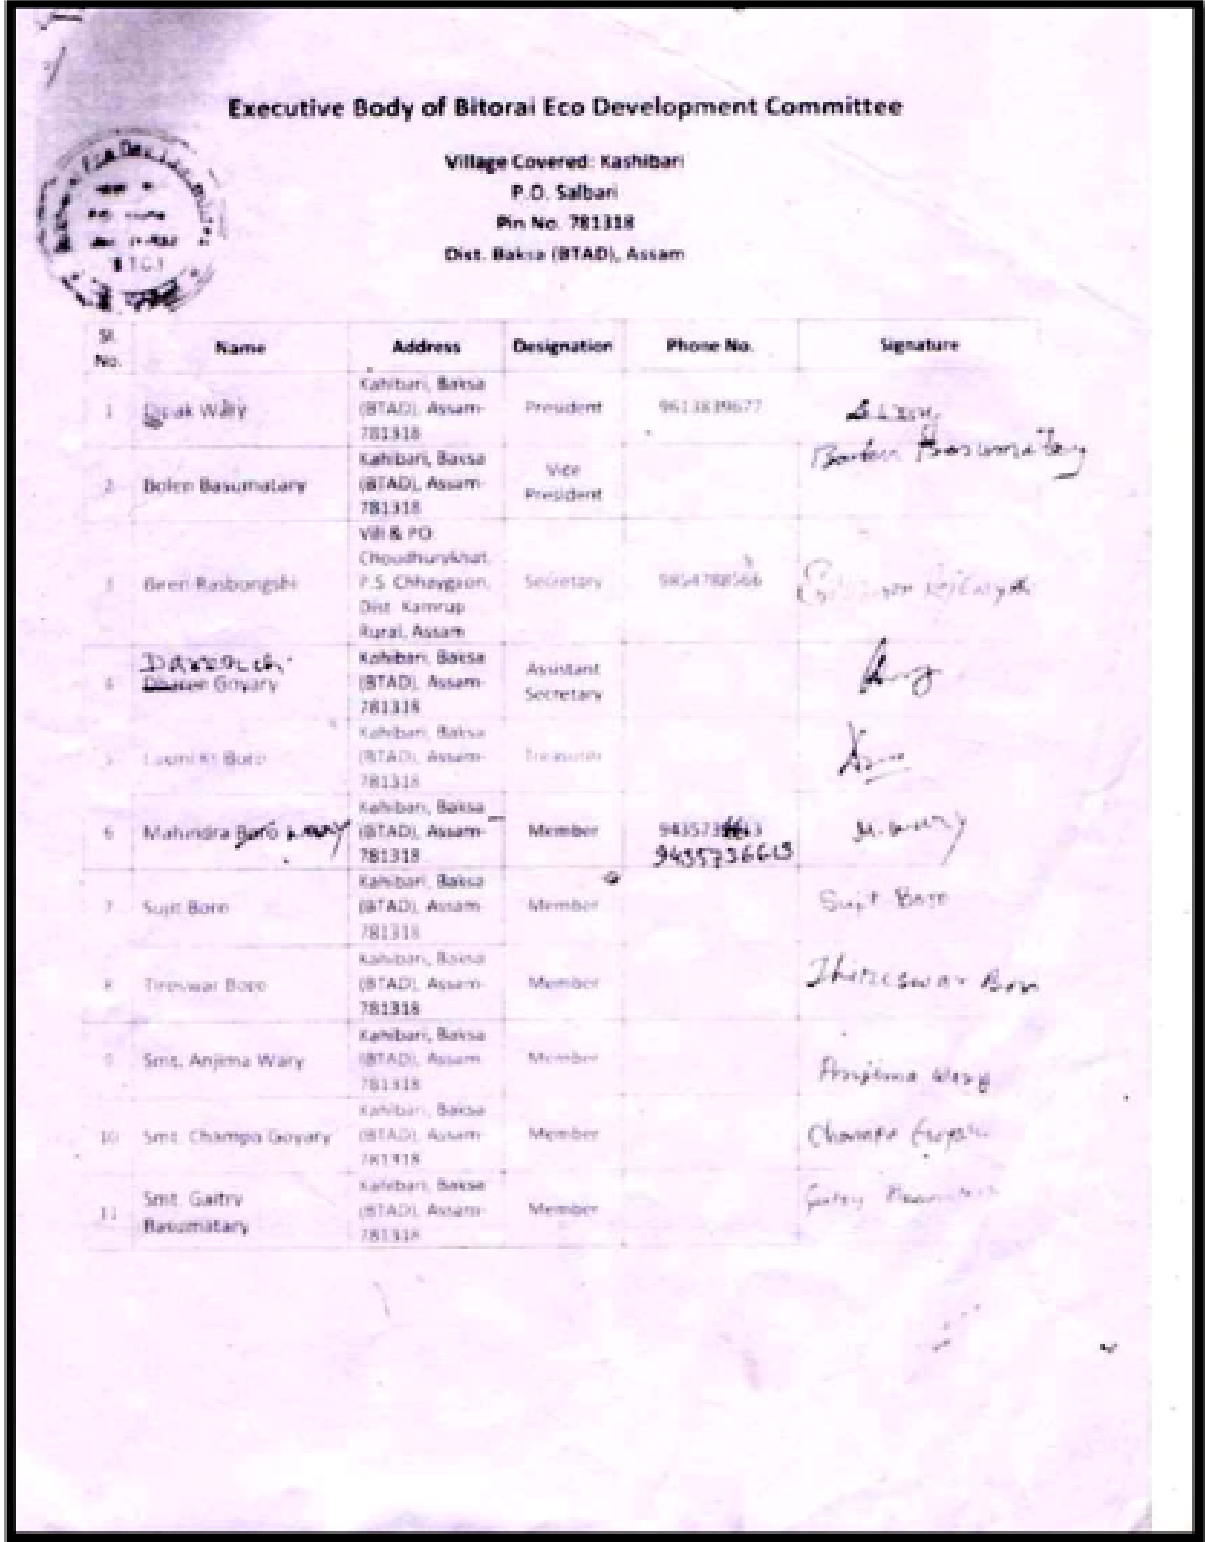 Executive Body of Bitorai Eco Development Committee
Village Covered: Kashibari
P.O. Salbari
Pin No. 781318
Dist. Baksa (BTAD), Assam
Sl. No. Name Address Designation Phone No. Signature
1 Dipak Wary Kahibari, Baksa (BTAD), Assam-781318 President 9613839677
2 Bolen Basumatary Kahibari, Baksa (BTAD), Assam-781318 Vice President Basumatary
3 Vill & PO. Choudhurykhat, P.S. Chhaygaon, Dist. Kamrup Rural, Assam Secretary
4 Goyary Kahibari, Baksa (BTAD), Assam-781318 Assistant Secretary
5 Laxmi Kt Boro Kahibari, Baksa (BTAD), Assam-781318 Treasurer
6 Mahindra Boro Wary Kahibari, Baksa (BTAD), Assam-781318 Member 9435736613 M. Wary
7 Sujit Boro Kahibari, Baksa (BTAD), Assam-781318 Member Sujit Boro
8 Tireswar Boro Kahibari, Baksa (BTAD), Assam-781318 Member Thireswar Boro
9 Smt. Anjima Wary Kahibari, Baksa (BTAD), Assam-781318 Member Anjima Wary
10 Smt. Champa Goyary Kahibari, Baksa (BTAD), Assam-781318 Member Champa Goyary
11 Smt. Gaitry Basumatary Kahibari, Baksa (BTAD), Assam-781318 Member